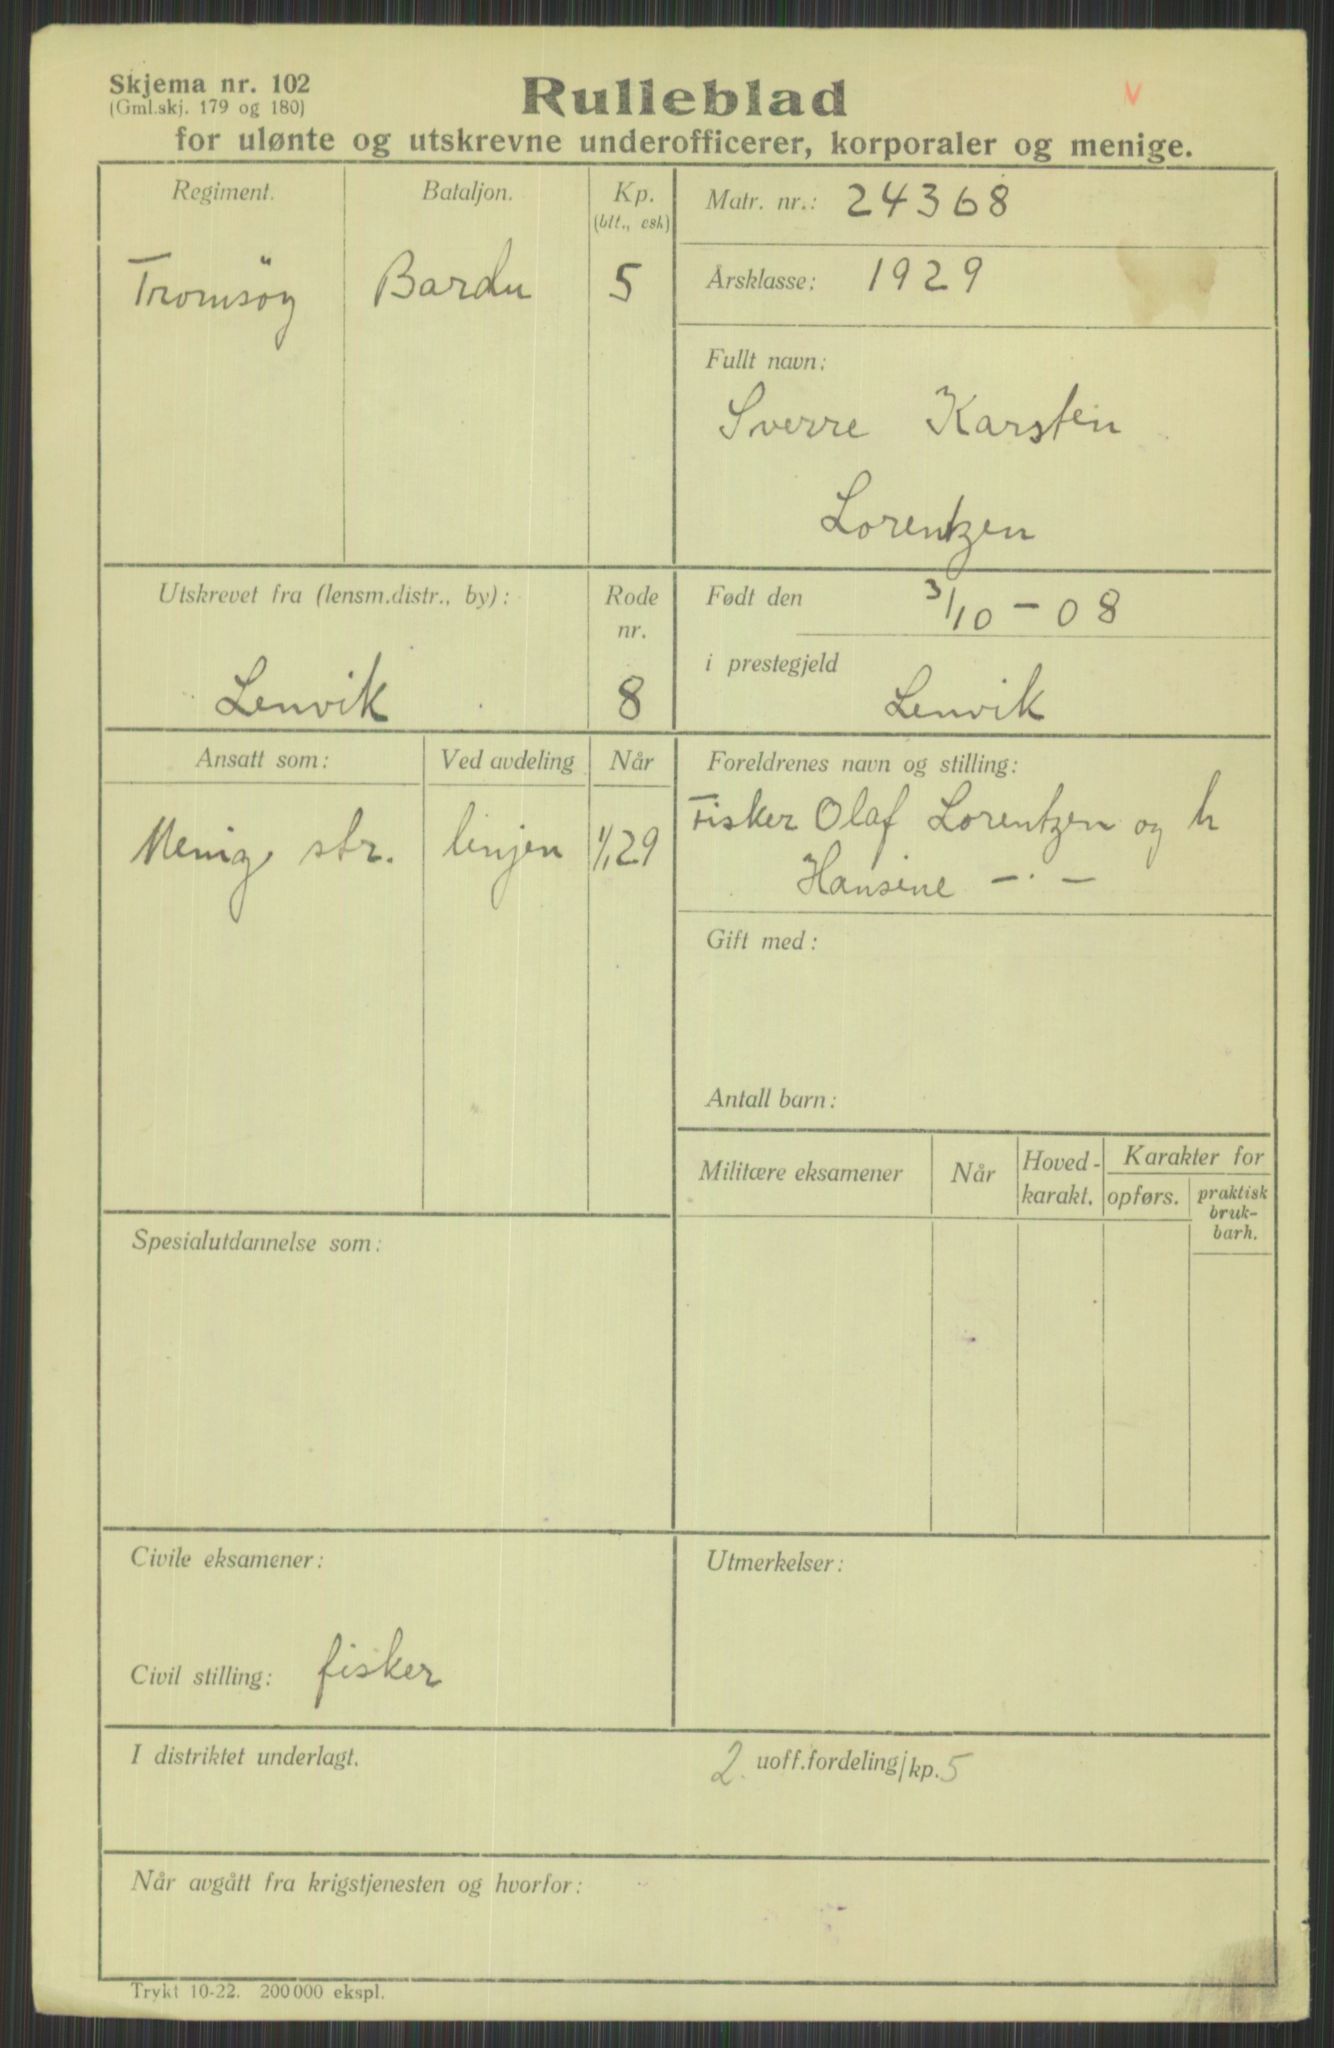 Skjema nr. 102
(Gml.skj. 179 og 180)
Rulleblad
v
for ulønte og utskrevne underofficerer, korporaler og menige.
Regiment.
Bataljon.
Kp.
(btt., esk)
Tromsöy
Bardu
5
Matr. nr.: 24368
Årsklasse: 1929
Fullt navn:
Sverre Karsten
Lorentzen
Utskrevet fra (lensm.distr., by):
Lenvik
Rode
nr.
8
Født den 3/10 - 08
i prestegjeld
Lenvik
Ansatt som:
Ved avdeling
Når
Menig str.
linjen
1/1 29
Foreldrenes navn og stilling:
Fisker Olaf Lorentzen og h
Hansine - · -
Gift med:
Antall barn:
Militære eksamener
Når
Hoved-
karakt.
Karakter for
opførs.
praktisk
bruk-
barh.
Spesialutdannelse som:
Civile eksamener:
Civil stilling: fisker
Utmerkelser:
I distriktet underlagt.
2. uoff.fordeling/kp. 5
Når avgått fra krigstjenesten og hvorfor:
Trykt 10-22. 200000 ekspl.